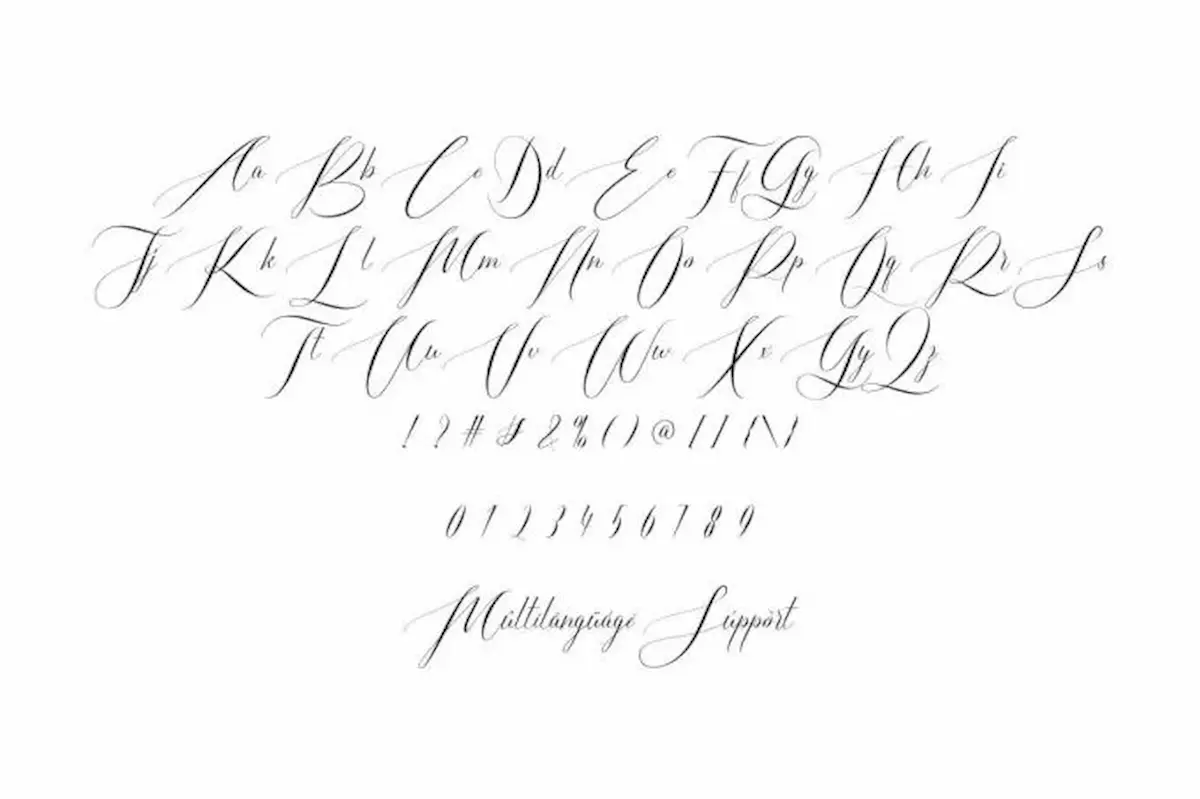 Aa Bb Cc Dd Ee Ff Gg Hh Ii
Jj Kk Ll Mm Nn Oo Pp Qq Rr Ss
Tt Uu Vv Ww Xx Yy Zz
! ? # $ & % ( ) @ [ ] { \ }
0 1 2 3 4 5 6 7 8 9
Múltilángúágé Súppórt